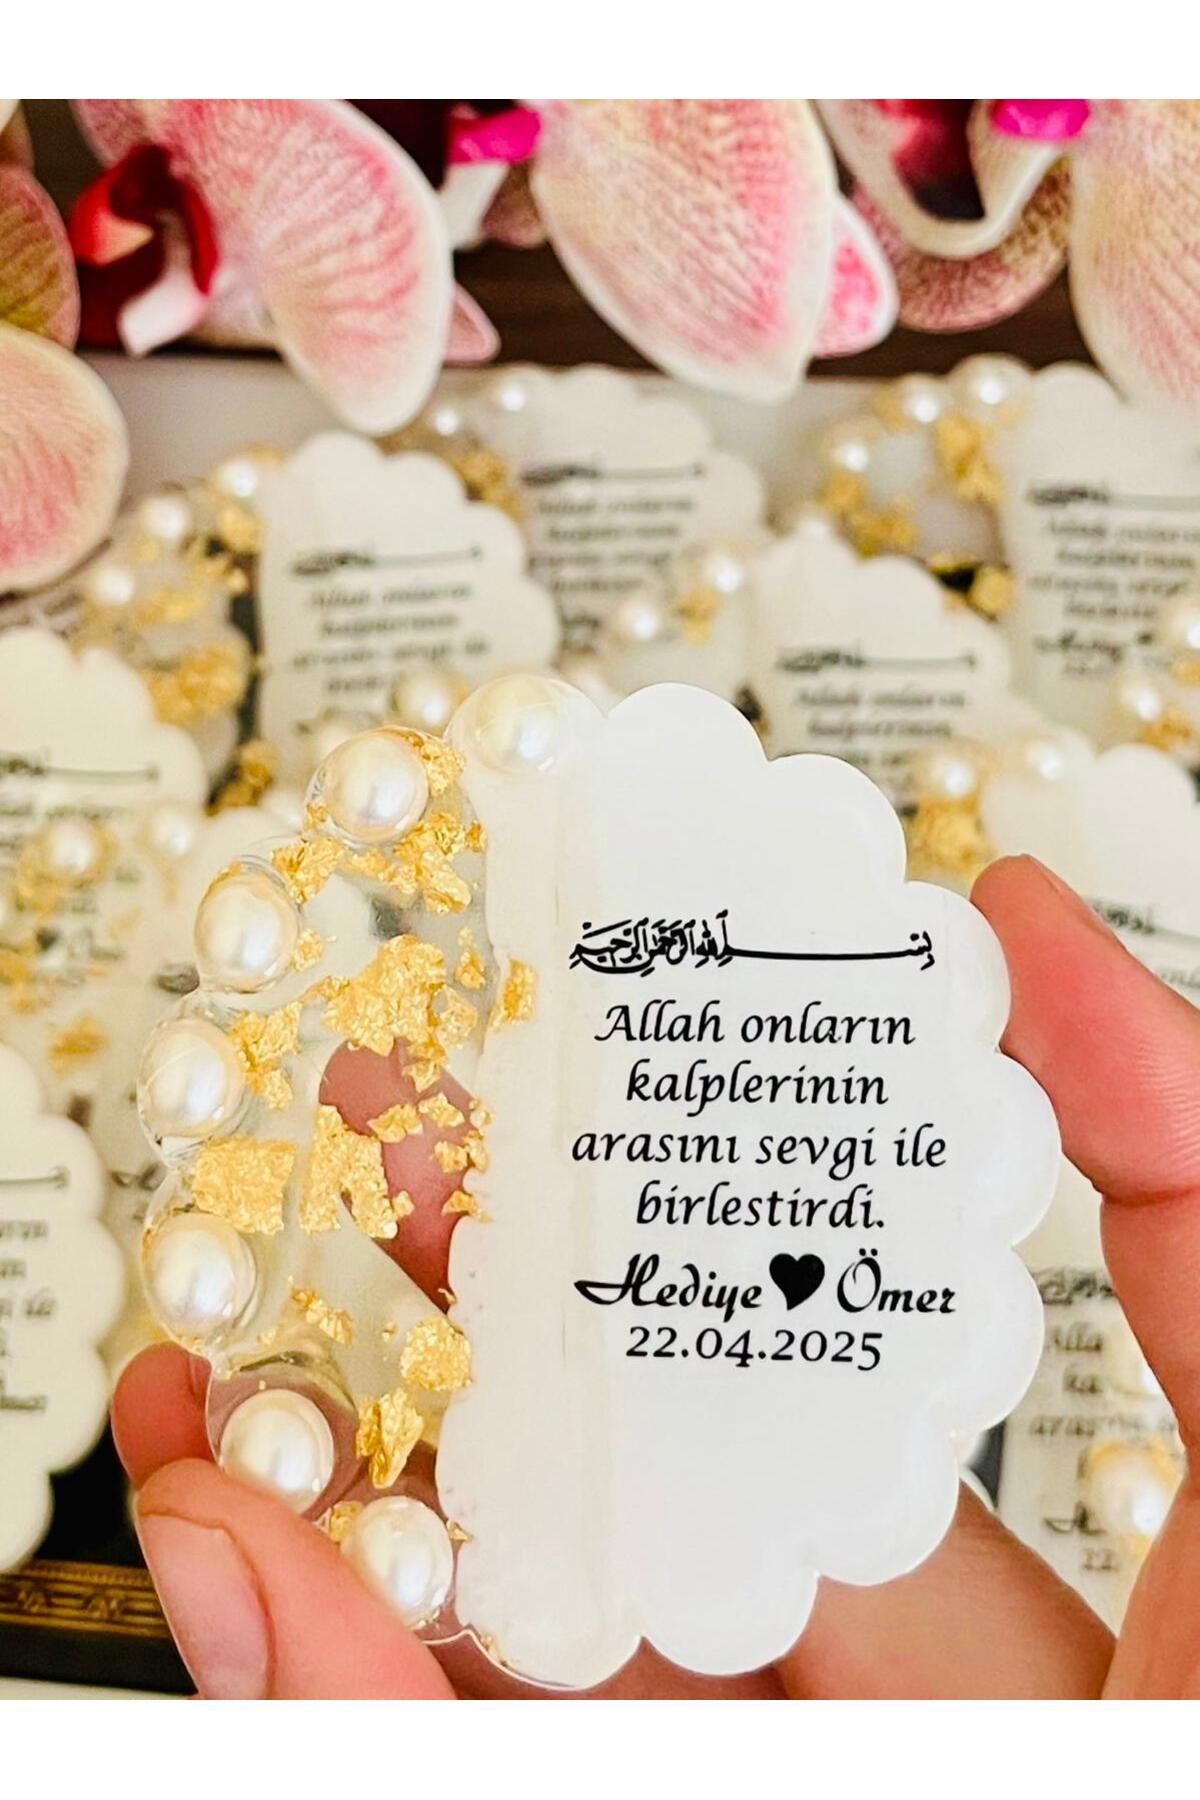 بسم الله الرحمن الرحيم
Allah onların
kalplerinin
arasını sevgi ile
birlestirdi.
Hediye♥Ömer
22.04.2025